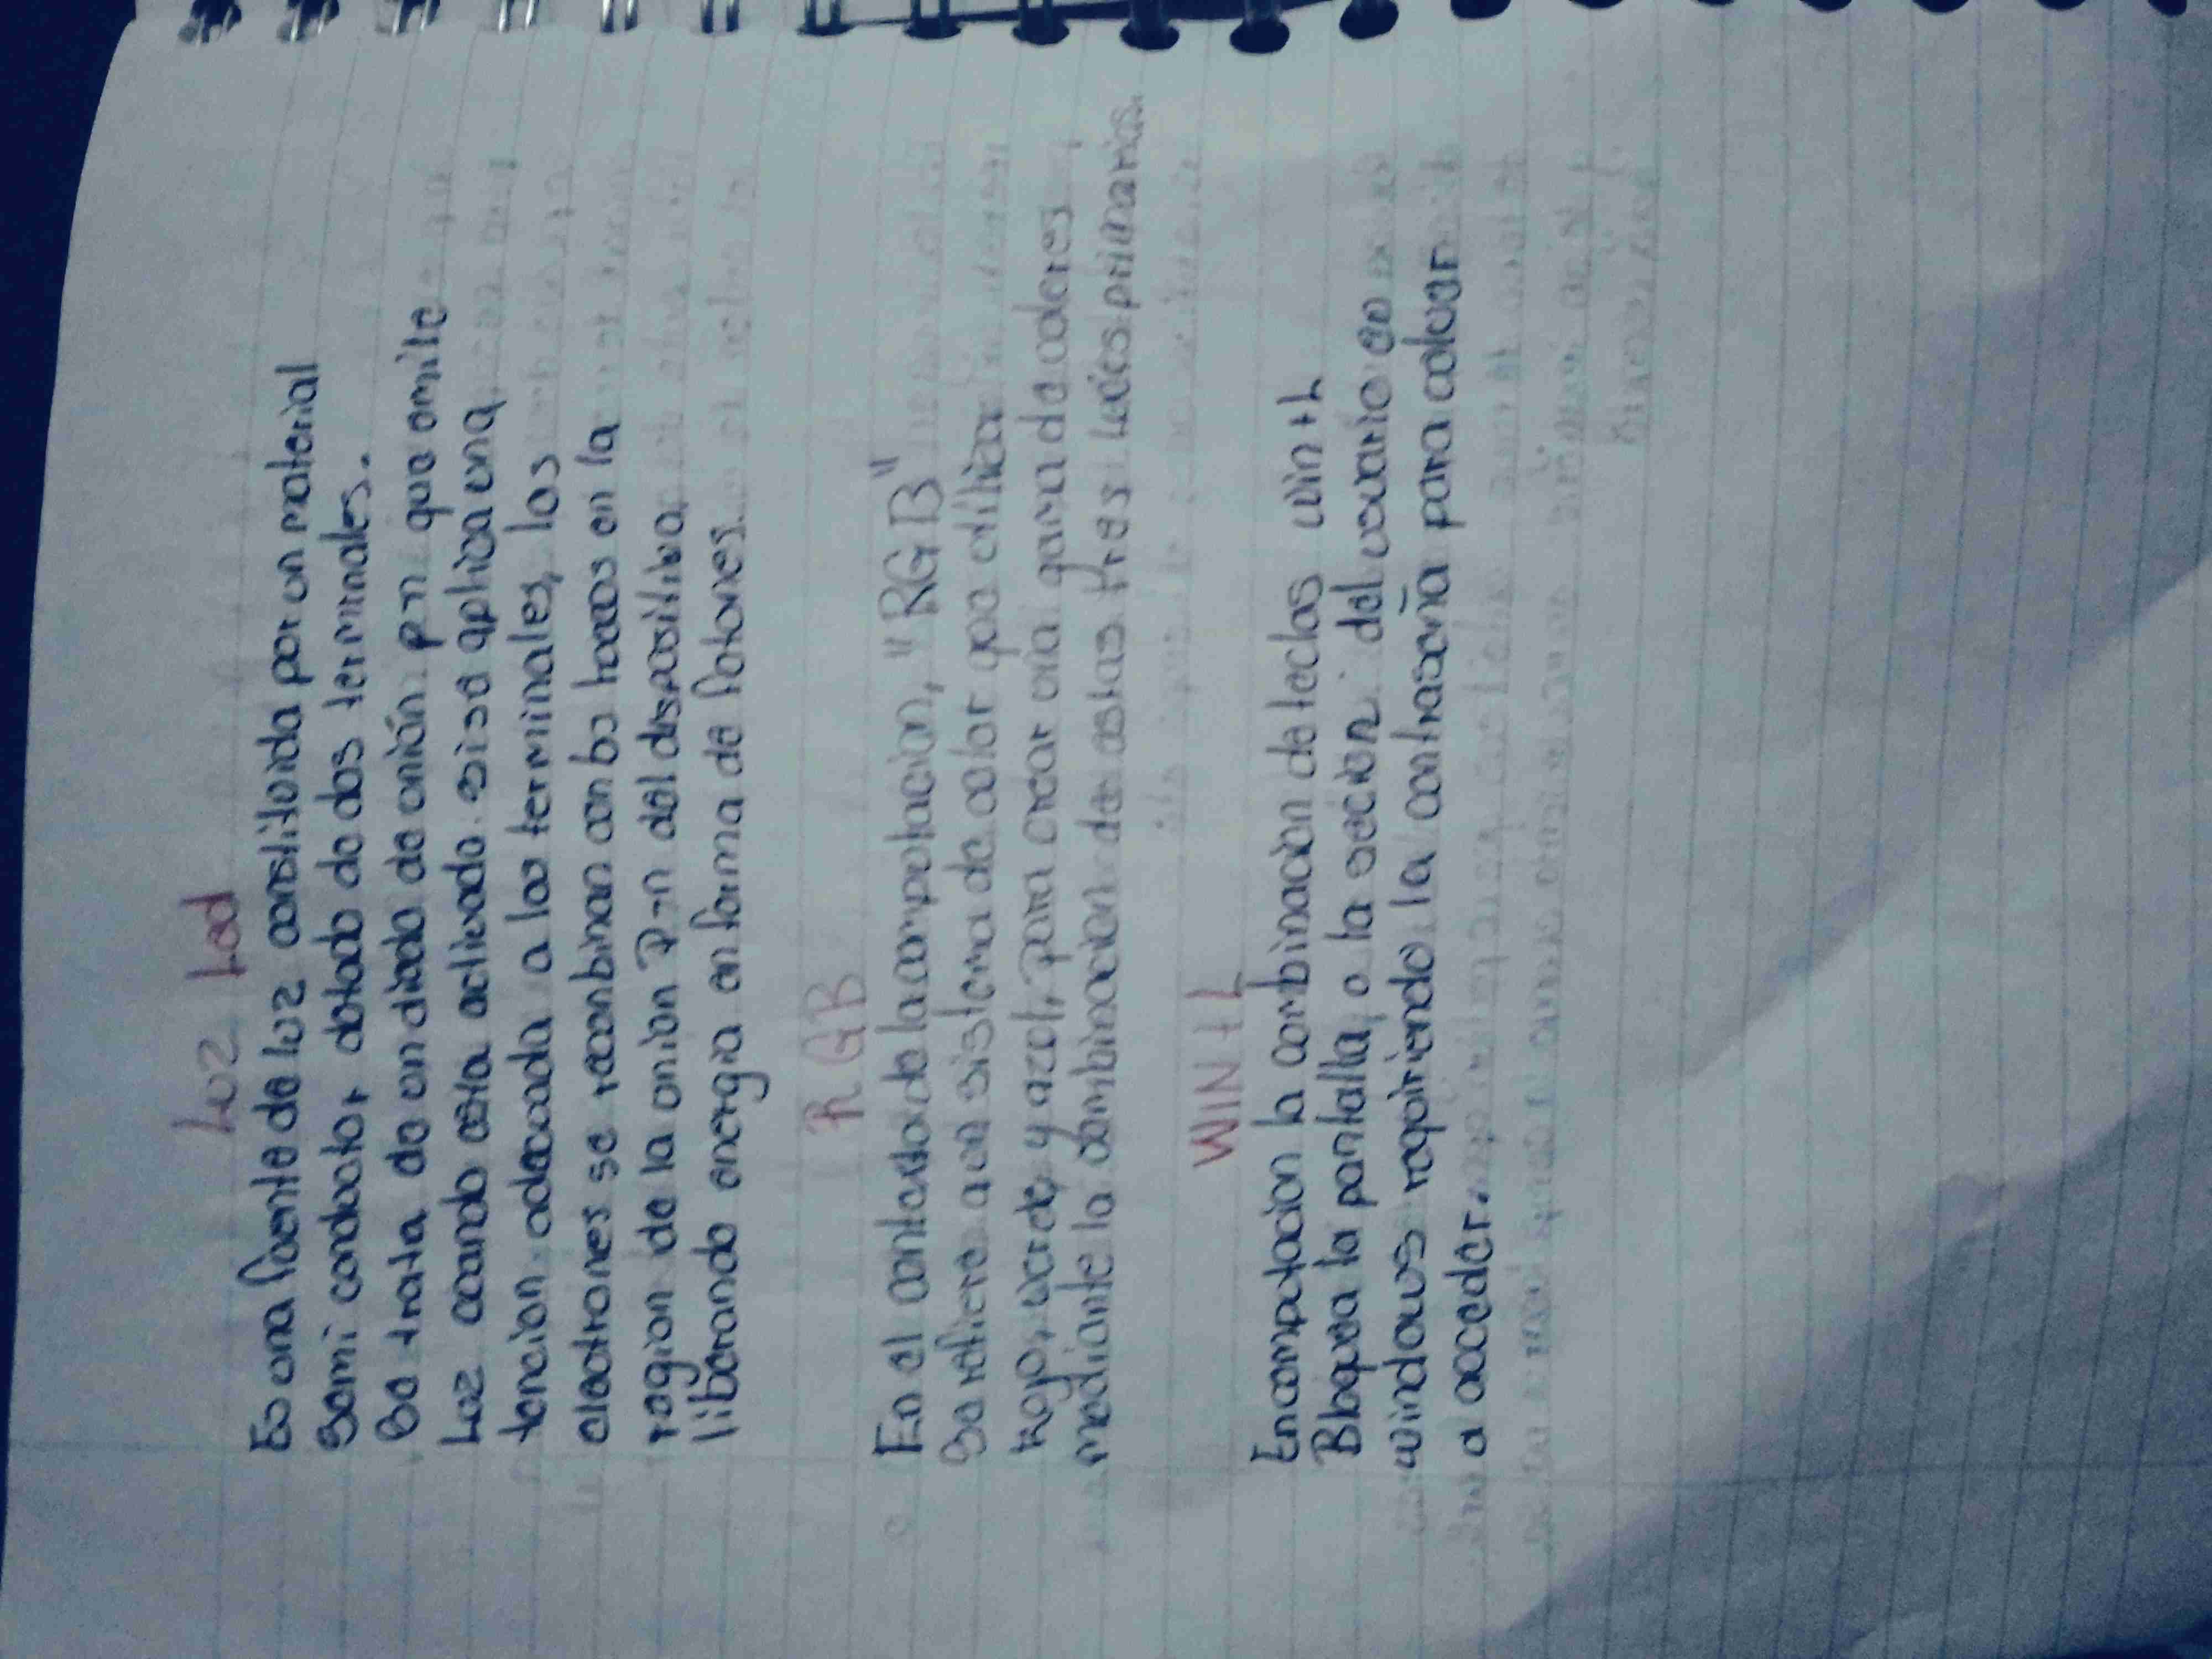 Luz Led
Es una fuente de luz constituida por un material
Semi conductor dotado de dos terminales.
Se trata de un diodo de unión p-n que emite
Luz cuando esta activado si se aplica una
tencion adecuada a los terminales, los
electrones se recombinan con los huecos en la
region de la union P-n del dispositivo,
liberando energia en forma de fotones.
RGB
En el contexto de la computacion, "RGB"
Se refiere a un sistema de color que utiliza
Rojo, verde, y azul, para crear una gama de colores
mediante la combinacion de estas tres luces primarias.
WIN + L
En computacion la combinacion de teclas win + L
Bloquea la pantalla, o la secion del usuario en
windows requiriendo la contraseña para volver
a acceder.